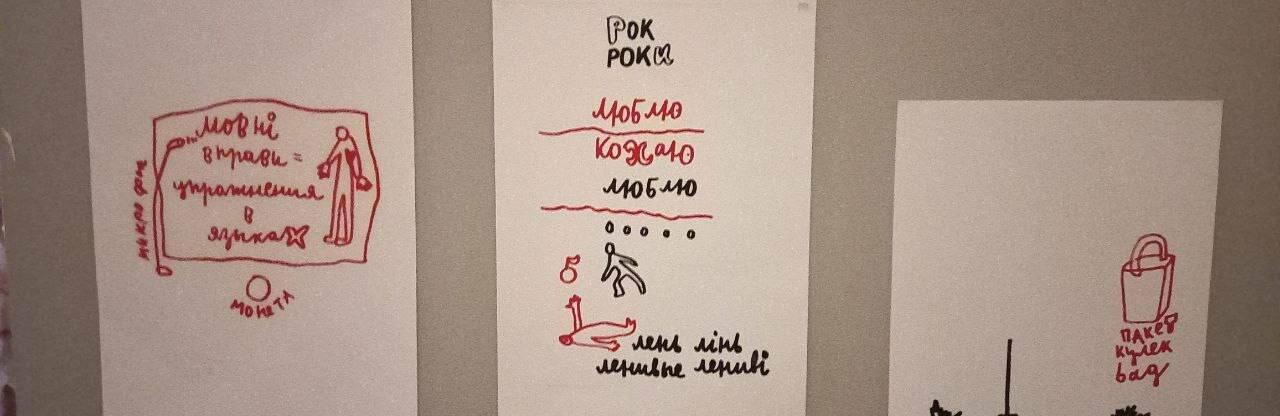 мовні
вправи =
упражнения
в
языках
микрофон
монета
РОК
РОКИ
люблю
кохаю
люблю
5
лень лінь
ленивые лениві
ПАКЕТ
кулек
bag